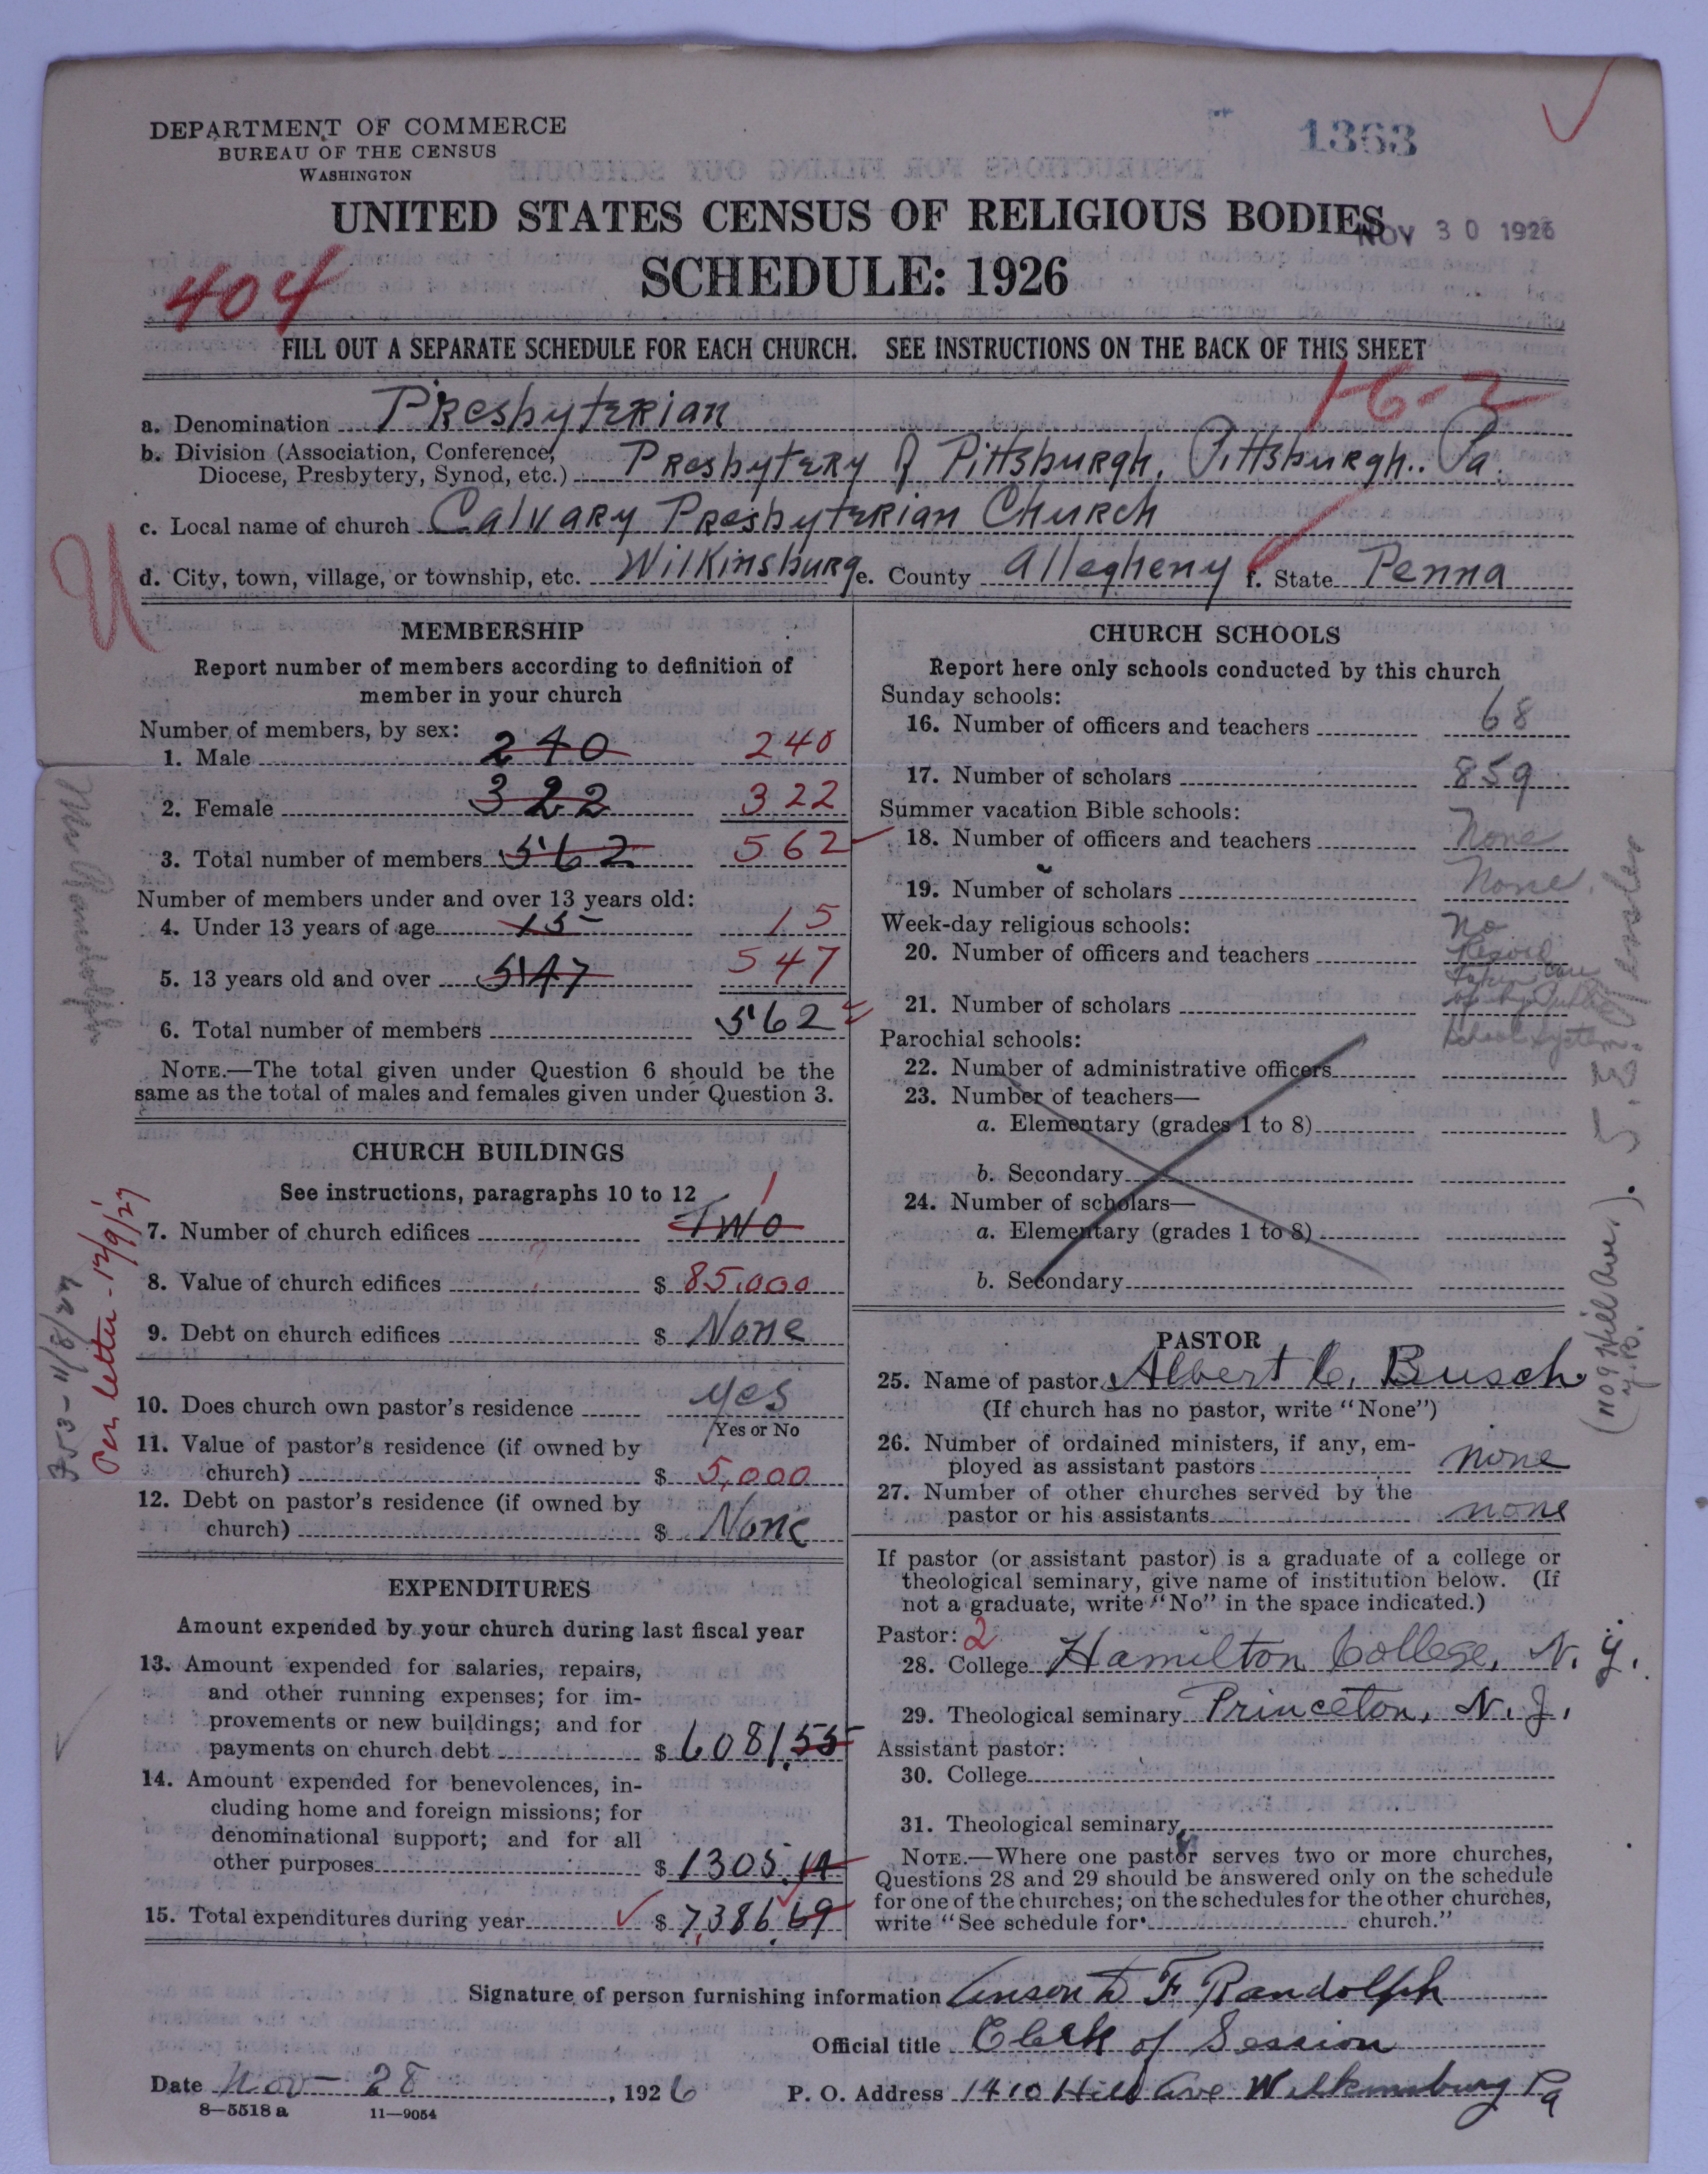 DEPARTMENT OF COMMERCE
BUREAU OF THE CENSUS
WASHINGTON
1363
UNITED STATES CENSUS OF RELIGIOUS BODIES
NOV 30 1926
SCHEDULE: 1926
404
FILL OUT A SEPARATE SCHEDULE FOR EACH CHURCH. SEE INSTRUCTIONS ON THE BACK OF THIS SHEET
1-6-2
a. Denomination Presbyterian
b. Division (Association, Conference,
Diocese, Presbytery, Synod, etc.) Presbytery of Pittsburgh, Pittsburgh.. Pa.
c. Local name of church Calvary Presbyterian Church
d. City, town, village, or township, etc. Wilkinsburg e. County Allegheny f. State Penna
U
MEMBERSHIP
Report number of members according to definition of
member in your church
Number of members, by sex:
1. Male 240 240
2. Female 322 322
3. Total number of members 562 562
Number of members under and over 13 years old:
4. Under 13 years of age 15 15
5. 13 years old and over 547 547
6. Total number of members 562
NOTE.—The total given under Question 6 should be the
same as the total of males and females given under Question 3.
CHURCH BUILDINGS
See instructions, paragraphs 10 to 12
7. Number of church edifices Two 1
8. Value of church edifices $ 85,000
9. Debt on church edifices $ None
10. Does church own pastor's residence yes
Yes or No
11. Value of pastor's residence (if owned by
church) $ 5,000
12. Debt on pastor's residence (if owned by
church) $ None
Per letter - 12/9/27
353 - 11/8/27
EXPENDITURES
Amount expended by your church during last fiscal year
13. Amount expended for salaries, repairs,
and other running expenses; for im-
provements or new buildings; and for
payments on church debt $ 6081.55
14. Amount expended for benevolences, in-
cluding home and foreign missions; for
denominational support; and for all
other purposes $ 1305.14
15. Total expenditures during year $ 7,386.69
CHURCH SCHOOLS
Report here only schools conducted by this church
Sunday schools:
16. Number of officers and teachers 68
17. Number of scholars 859
Summer vacation Bible schools:
18. Number of officers and teachers None
19. Number of scholars None.
Week-day religious schools:
20. Number of officers and teachers No Record
taken care
21. Number of scholars of by Public
School System
Parochial schools:
22. Number of administrative officers
23. Number of teachers—
a. Elementary (grades 1 to 8)
b. Secondary
24. Number of scholars—
a. Elementary (grades 1 to 8)
b. Secondary
PASTOR
25. Name of pastor Albert C. Busch
(If church has no pastor, write "None")
26. Number of ordained ministers, if any, em-
ployed as assistant pastors none
27. Number of other churches served by the
pastor or his assistants none
If pastor (or assistant pastor) is a graduate of a college or
theological seminary, give name of institution below. (If
not a graduate, write "No" in the space indicated.)
Pastor: 2
28. College Hamilton College, N. Y.
29. Theological seminary Princeton, N. J.
Assistant pastor:
30. College
31. Theological seminary
NOTE.—Where one pastor serves two or more churches,
Questions 28 and 29 should be answered only on the schedule
for one of the churches; on the schedules for the other churches,
write "See schedule for church."
(1109 Hill Ave.)
Signature of person furnishing information Anson D F Randolph
Official title Clerk of Session
Date Nov - 28, 1926 P. O. Address 1410 Hill Ave Wilkinsburg Pa
8—5518 a 11—9054